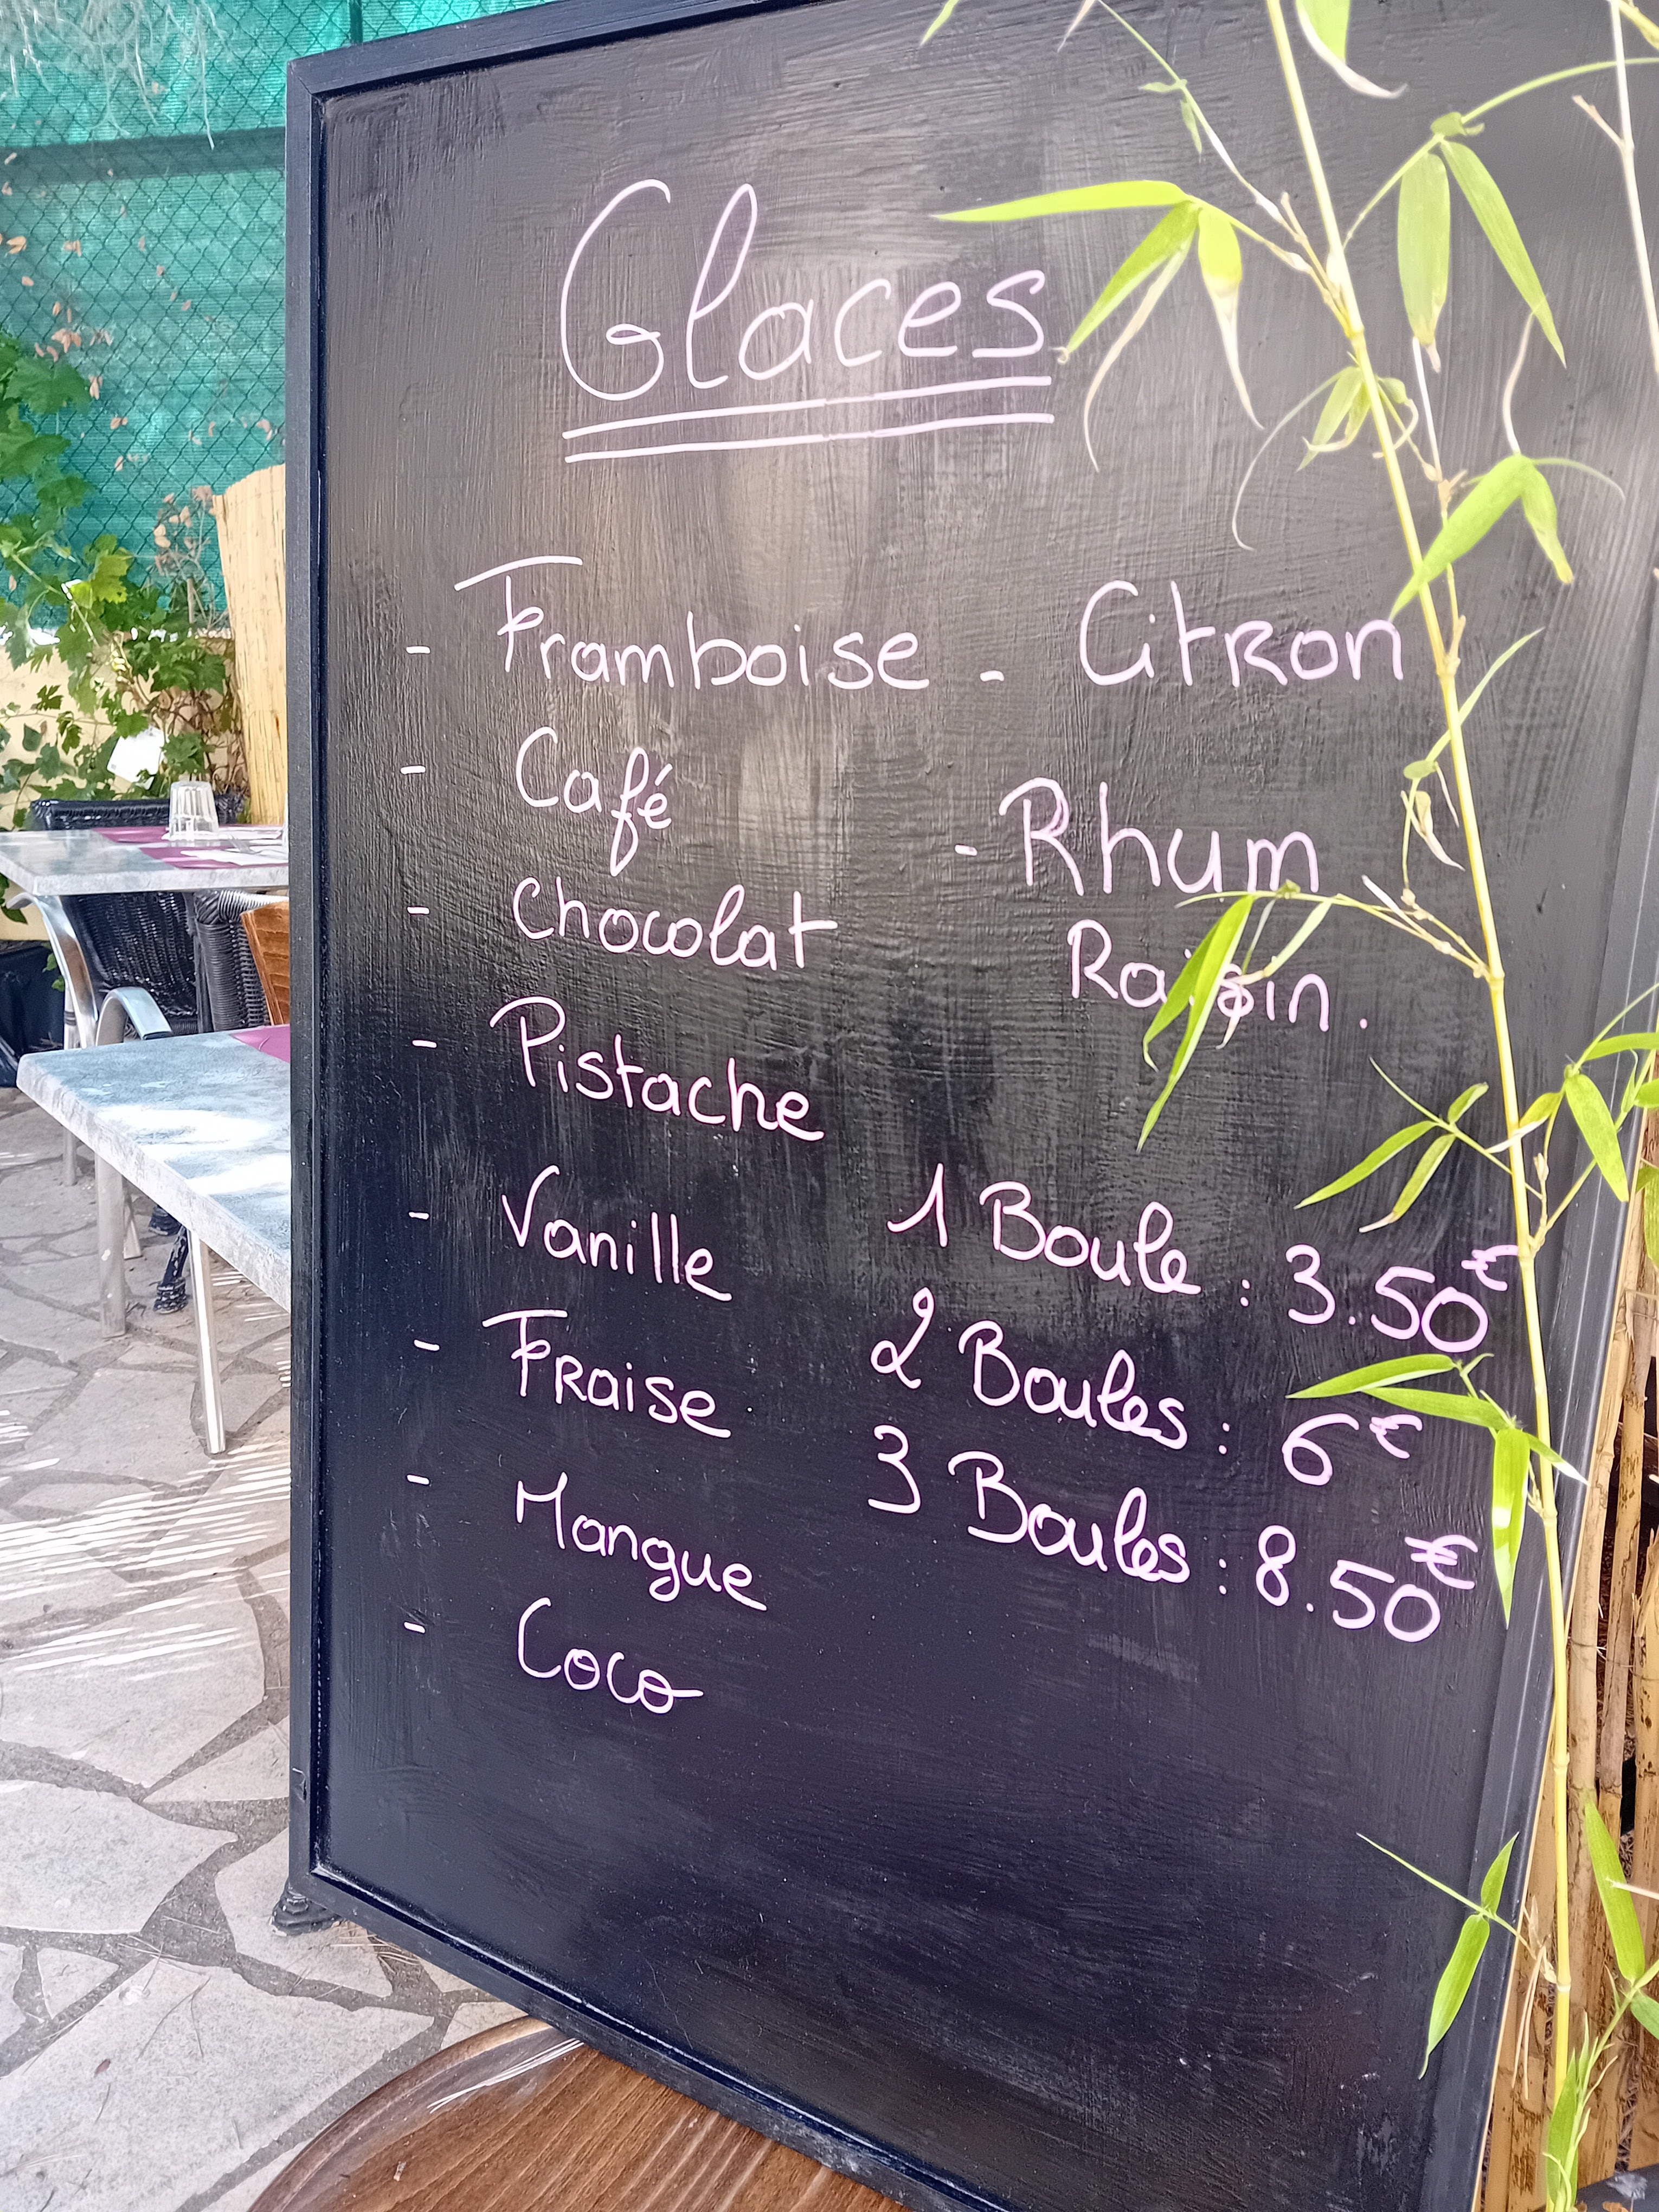 Glaces
- Framboise
- Café
- Chocolat
- Pistache
- Vanille
- Fraise
- Mangue
- Coco
- Citron
- Rhum
Raisin.
1 Boule : 3.50€
2 Boules : 6€
3 Boules : 8.50€